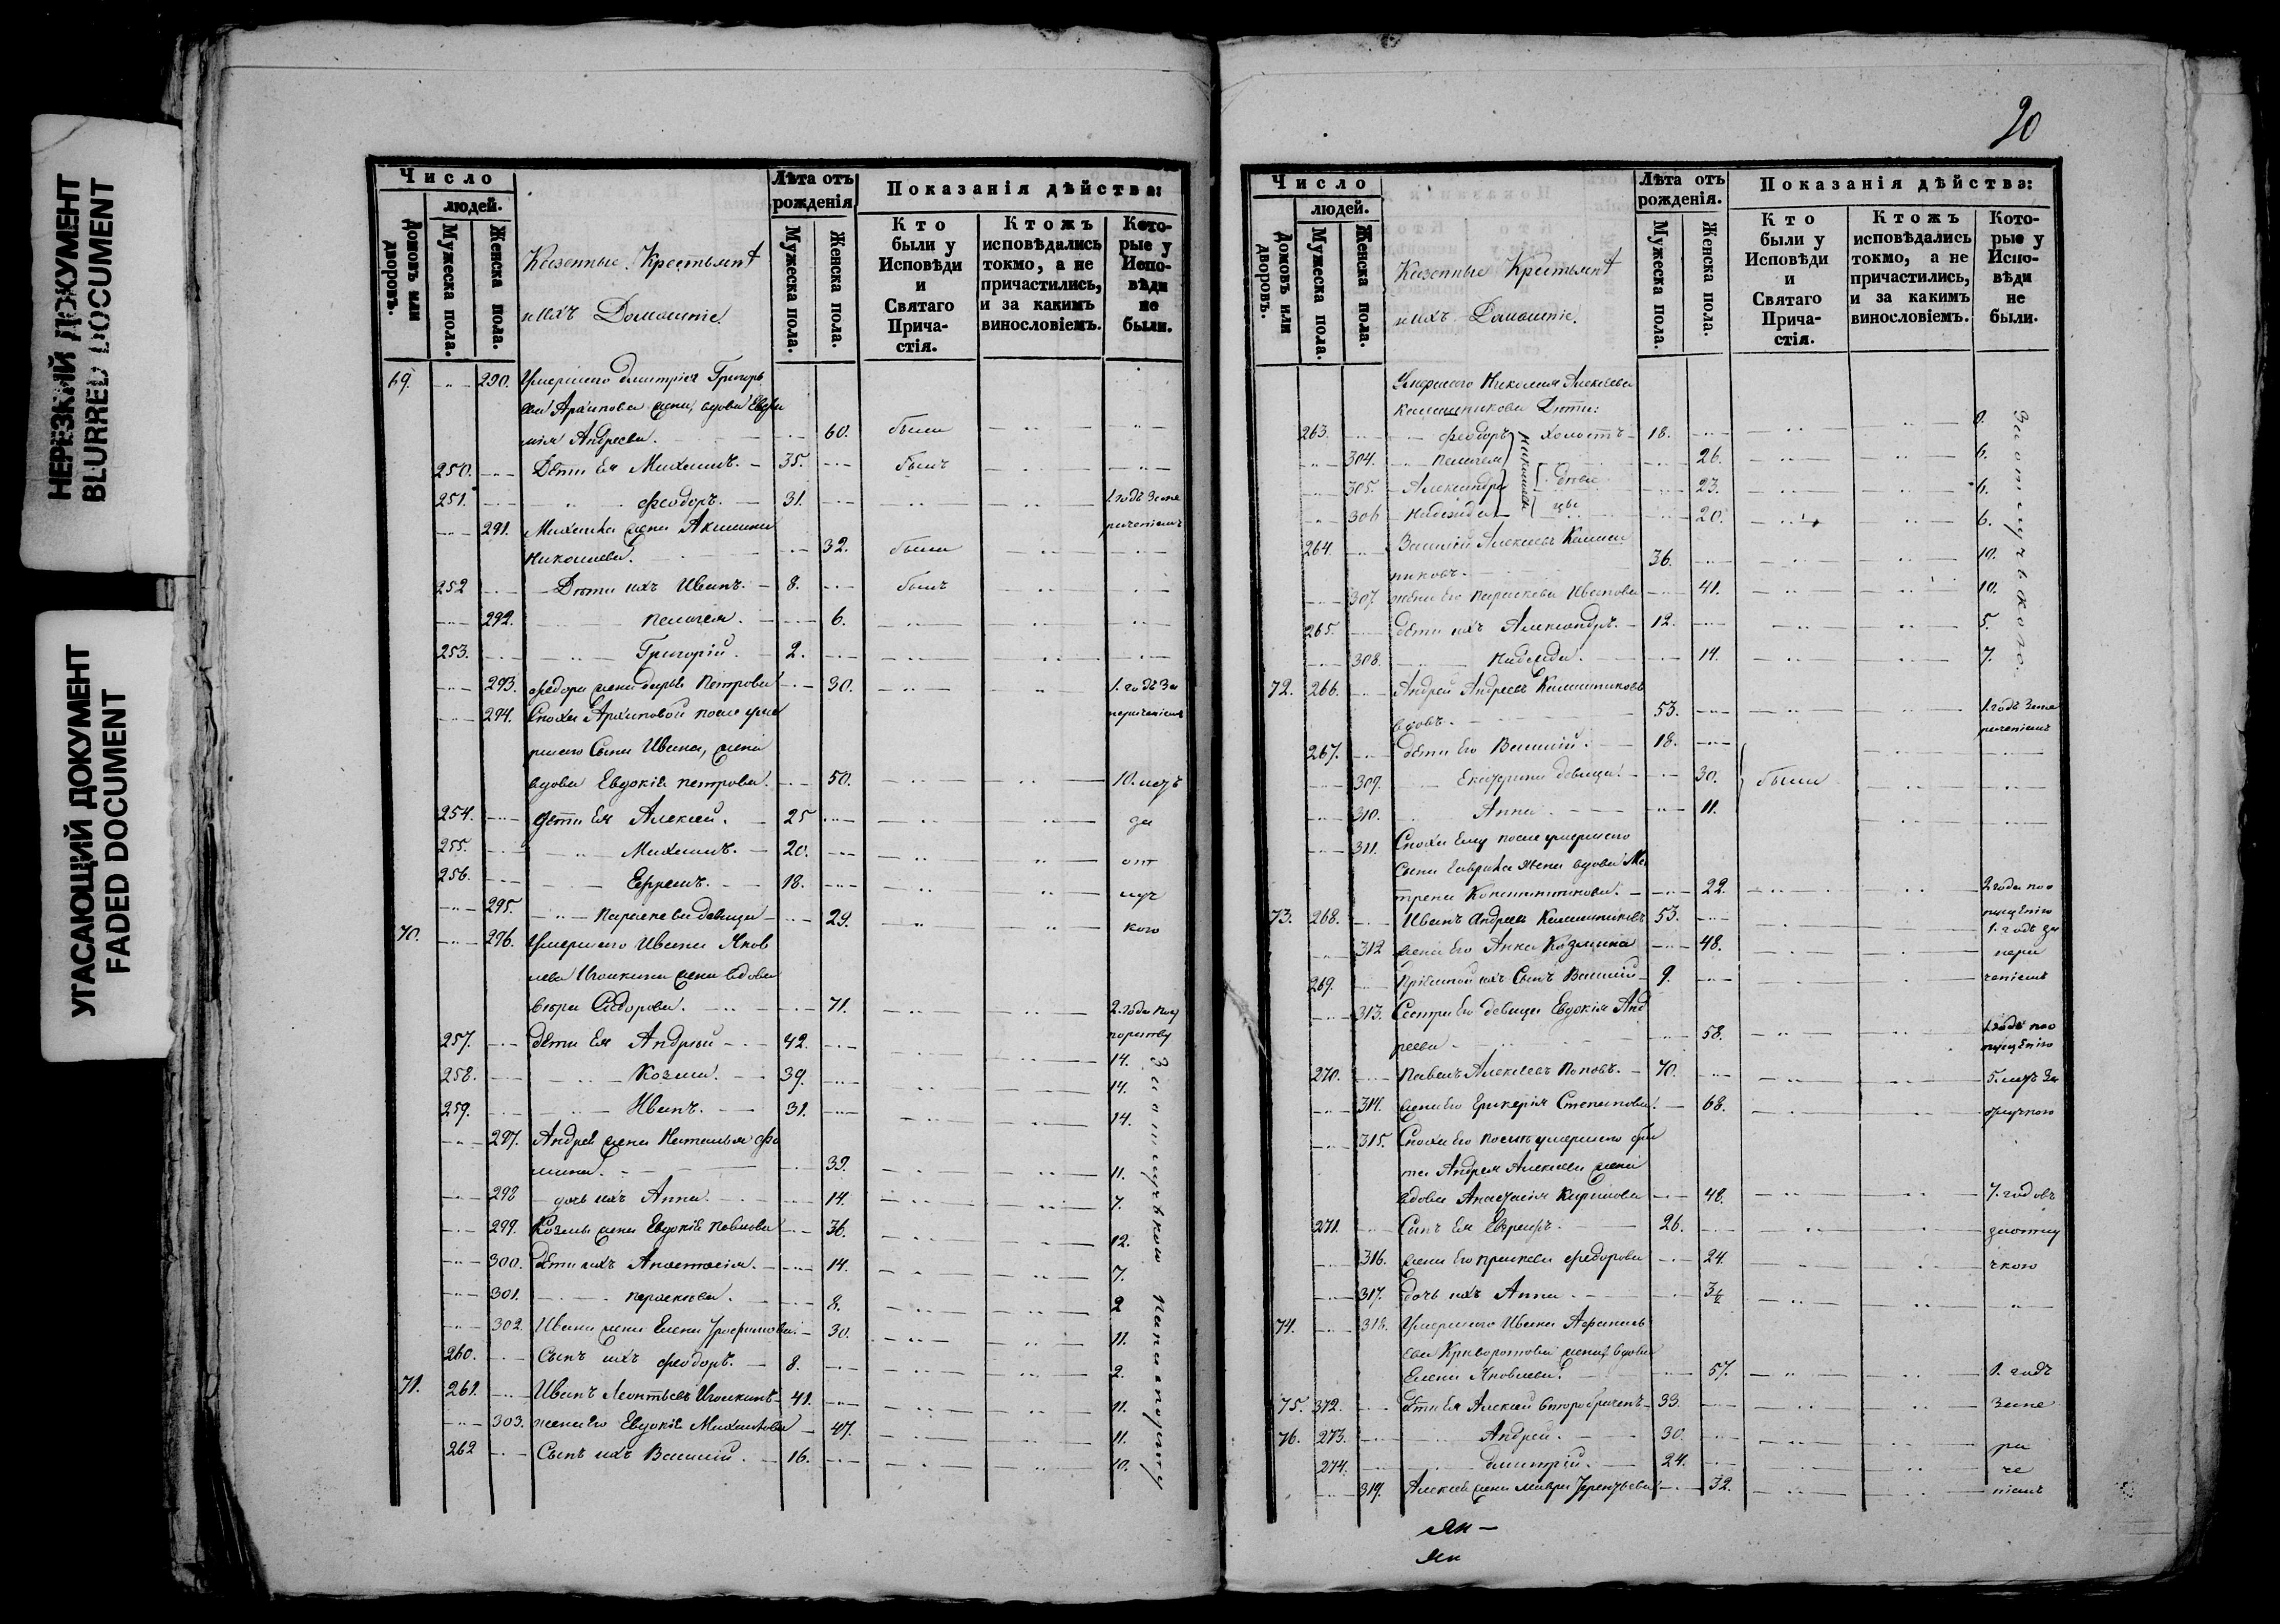 НЕРЕЗКИЙ ДОКУМЕНТ
BLURRED DOCUMENT
УГАСАЮЩИЙ ДОКУМЕНТ
FADED DOCUMENT
Число
людей.
Домовъ или дворовъ.
Мужеска пола.
Женска пола.
Казенные Крестьяне
и ихъ Домашніе.
Лѣта отъ рожденія
Мужеска пола.
Женска пола.
Показанія дѣйства:
Кто были у Исповѣди и Святаго Причастія.
Ктожъ исповѣдались токмо, а не причастились, и за какимъ винословіемъ.
Которые у Исповѣди не были.
69. 290. Умершаго Димитрія Григорь
ева Архипова жена, вдова Евфи
мія Андреева. 60. была
250. Дѣти ея Михаилъ. 35. былъ
251. Феодоръ. 31. 1. годъ за не
291. Михаила жена Акилина рачениемъ
Николаева. 32. была
252 Дѣти ихъ Иванъ. 8. былъ
292. Пелагея. 6.
253. Григорій. 2.
293. Федора жена Дарья Петрова 30. 1. годъ за
294. Сноха Архиповой после уме нерачениемъ
ршаго Сына Ивана, жена
вдова Евдокія Петрова. 50. 10. летъ
254. Дѣти ея Алексей. 25 за
255. Михаилъ. 20. от
256. Ефремъ. 18. луч
295. Параскева девица 29. кою
70. 296. Умершаго Ивана Яков
лева Игошкина жена вдова
Вѣра Сидорова. 71. 2. года по
257. Дѣти ея Андрей 42. 14.
258. Козма. 39. 14.
259. Иванъ. 31. 14.
297. Андрея жена Наталья Фо
мина. 39. 11.
298 дочь ихъ Анна. 14. 7.
299. Козмы жена Евдокія Павлова 36. 12.
300. Дѣти ихъ Анастасія. 14. 7.
301. Параскева. 8. 2
302. Ивана жена Елена Трофимова 30. 11.
260. Сынъ ихъ Феодоръ. 8. 2.
71. 261. Иванъ Леонтьевъ Игошкинъ 41. 11.
303. жена его Евдокія Михайлова 47. 11.
262 Сынъ ихъ Василій. 16. 10.
За отлучкою
20
Число
людей.
Домовъ или дворовъ.
Мужеска пола.
Женска пола.
Казенные Крестьяне
и ихъ Домашніе.
Лѣта отъ рожденія.
Мужеска пола.
Женска пола.
Показанія дѣйства:
Кто были у Исповѣди и Святаго Причастія.
Ктожъ исповѣдались токмо, а не причастились, и за какимъ винословіемъ.
Которые у Исповѣди не были.
Умершаго Николая Алексеева
Калашникова Дѣти:
263. Феодоръ холостъ 18.
304. Пелагея 26. 6.
305. Александра деви 23. 6.
306 Надежда цы 20. 6.
Николаевы
264. Василій Алексеевъ Калаш
никовъ. 36. 10.
307. жена его Параскева Иванова 41. 10.
265. Дѣти ихъ Александръ. 12. 5.
308. Надежда. 14. 7.
За отлучкою.
72. 266. Андрей Андреевъ Калашниковъ
вдовъ. 53. 1. годъ за не
рачениемъ
267. Дѣти его Василій. 18.
309. Екатерина девица. 30. были
310. Анна 11.
311. Сноха ему после умершаго
Сына Гаврила жена вдова Ма
трена Константинова. 22. 2. года по о
пущенію
73. 268. Иванъ Андреевъ Калашниковъ 53. 1. годъ за
312 жена его Анна Козмина 48. нера
269. Приемной ихъ Сынъ Василій 9. чениемъ
313. Сестра его девица Евдокія Анд
реева 58. 1. годъ по о
пущенію
270. Павелъ Алексеевъ Поповъ. 70. 5. летъ за
314. жена его Гликерія Степанова. 68. отлучкою
315. Сноха его после умершаго бра
та Андрея Алексеева жена
вдова Анастасія Кирилова 48. 7. годовъ
271. Сынъ ея Евграфъ. 26. за отлу
316. жена его Праскева Федорова 24. чкою
317. дочь ихъ Анна 3½
74. 318. Умершаго Ивана Афанась
ева Криворотова жена, вдова
Елена Яковлева. 57. 1. годъ
75. 372. Дѣти ея Алексей второбраченъ 33. за не
76. 273. Андрей. 30. ра
274. Димитрій. 24. че
319. Алексея жена Мавра Терентьева 32. ніемъ